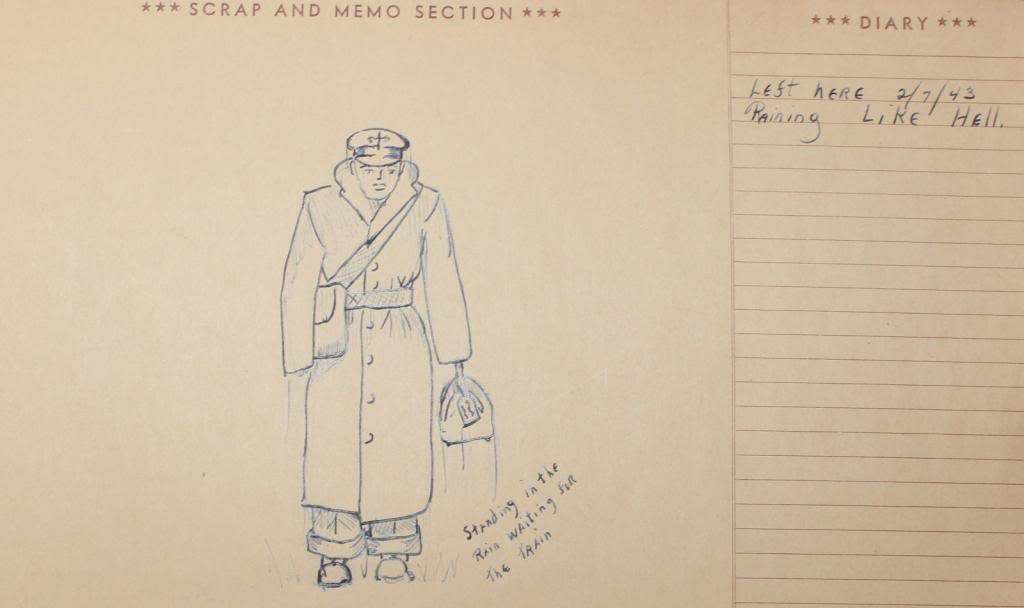 *** SCRAP AND MEMO SECTION ***
*** DIARY ***
Left here 2/7/43
Raining Like Hell.
Standing in the
Rain waiting for
the train